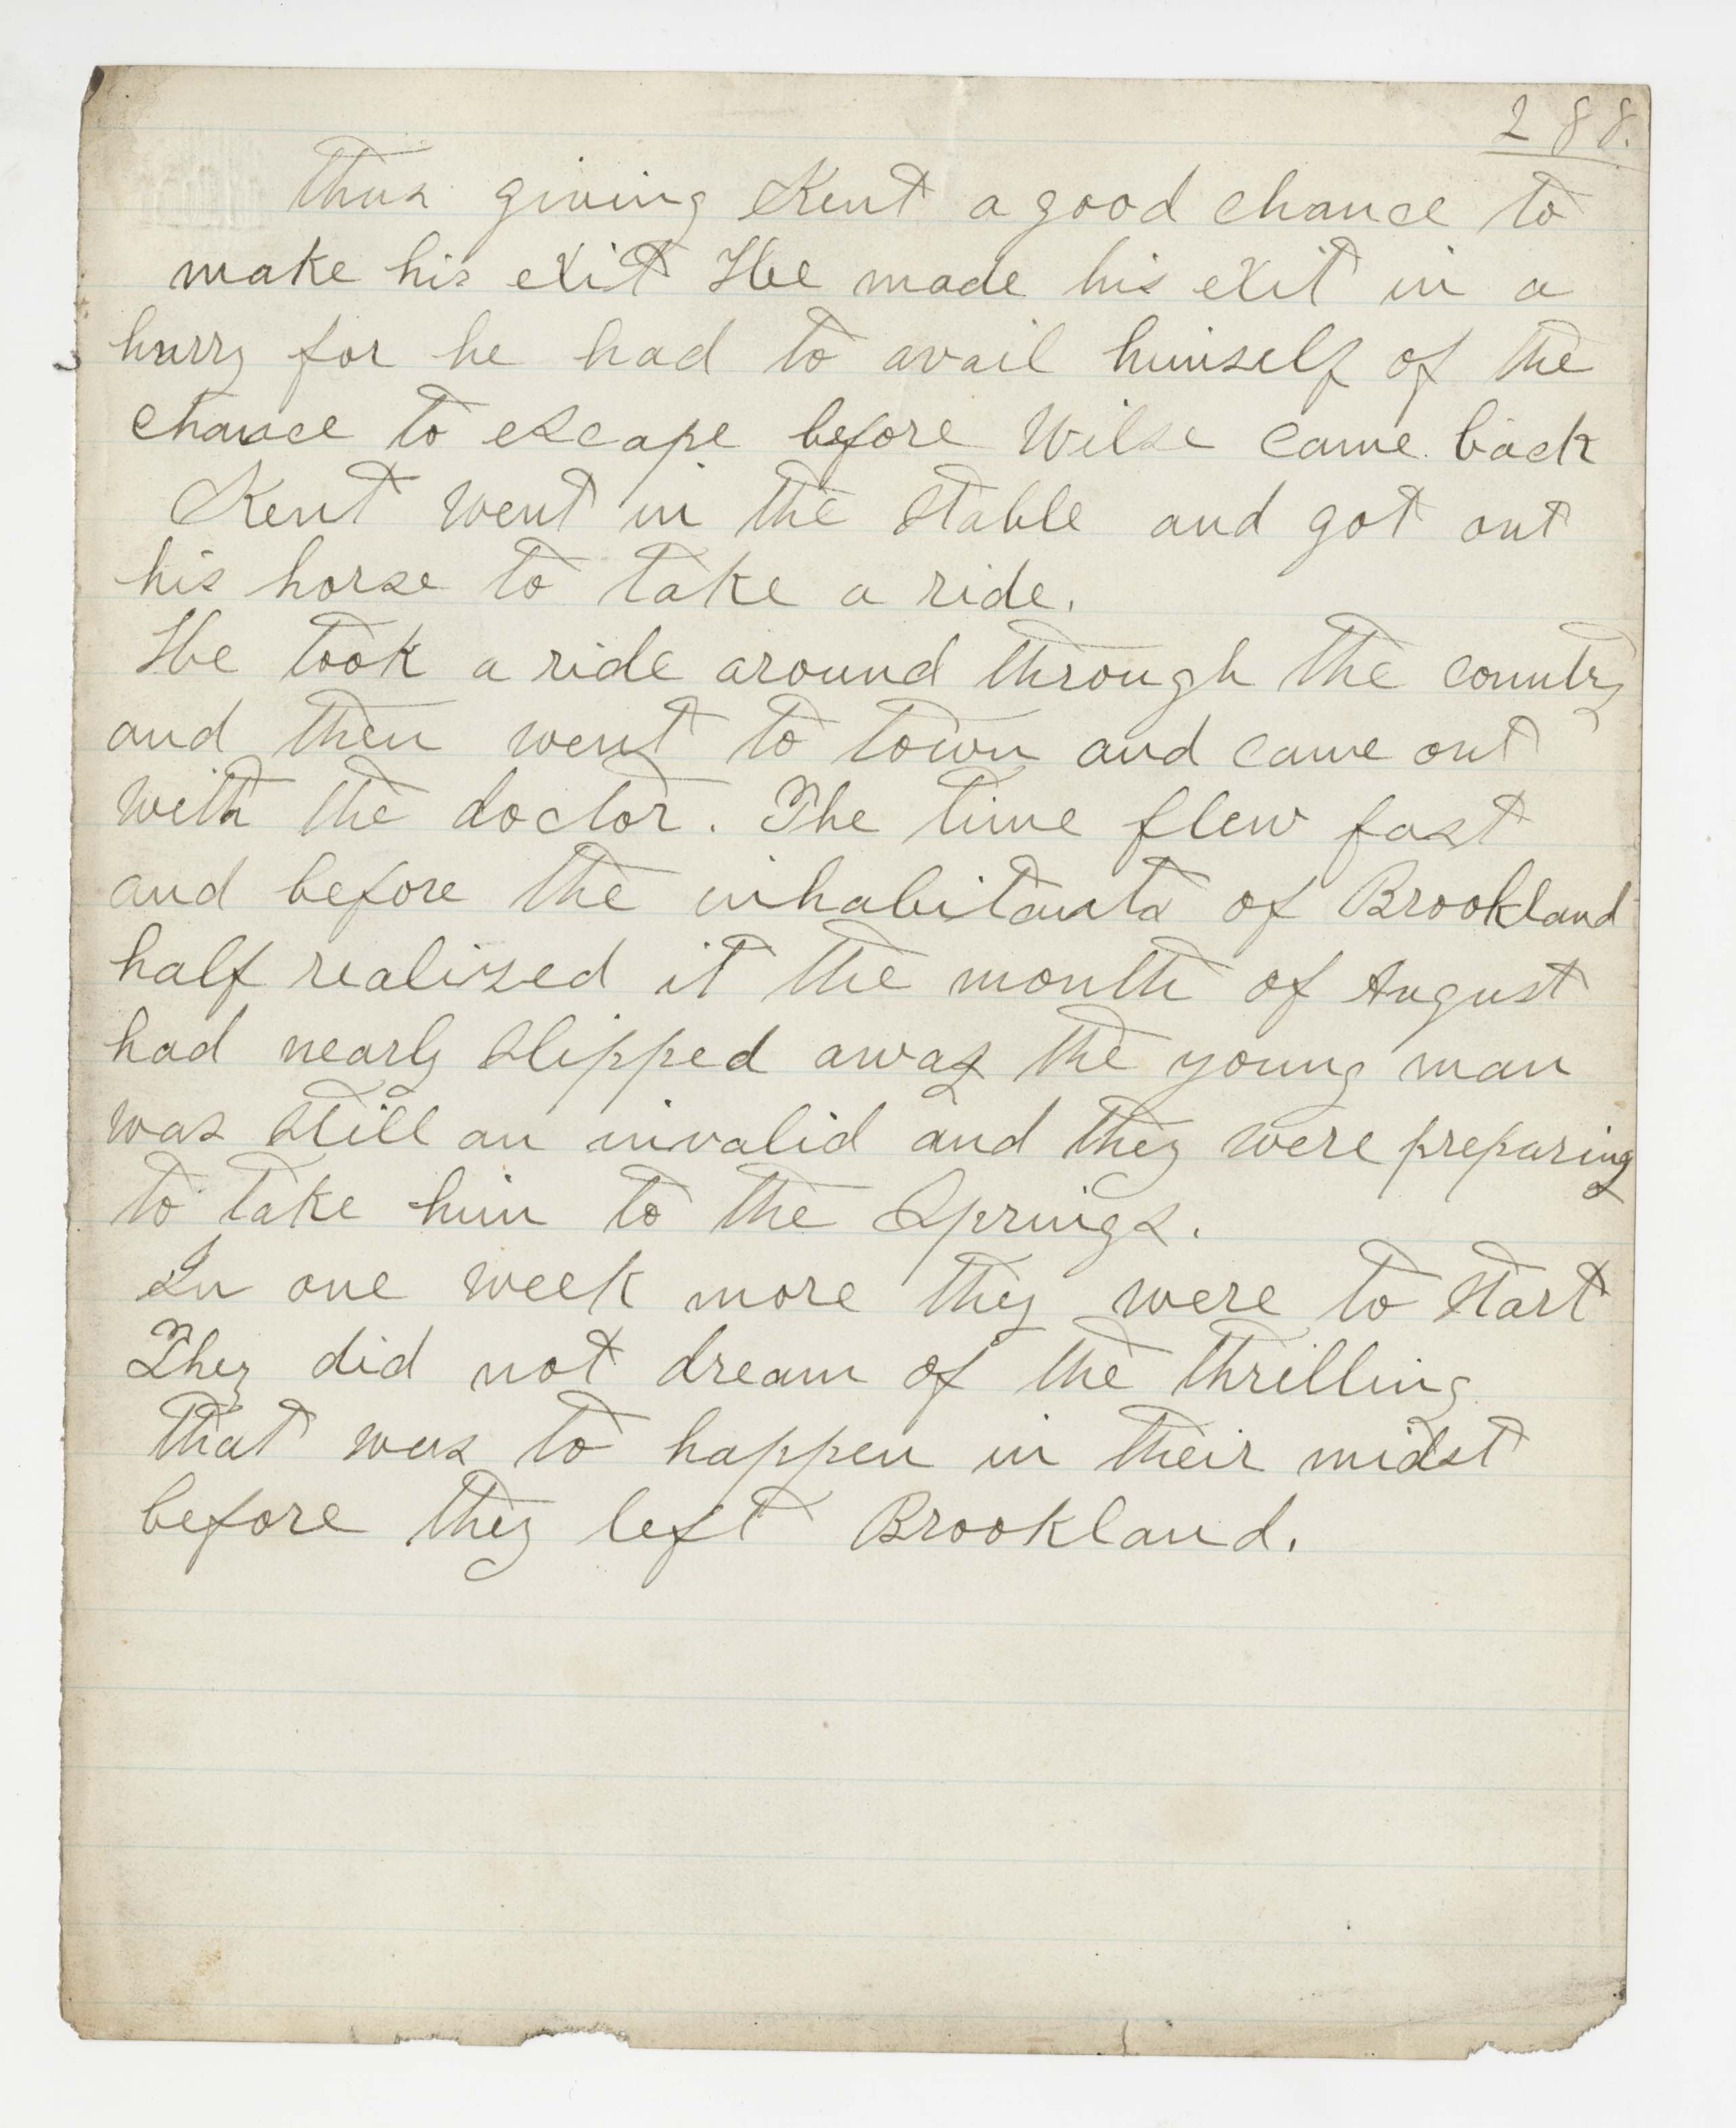 288.
thus giving Kent a good chance to
make his exit He made his exit in a
hurry for he had to avail himself of the
chance to escape before Wilse came back
Kent went in the stable and got out
his horse to take a ride.
He took a ride around through the country
and then went to town and came out
with the doctor. The time flew fast
and before the inhabitants of Brookland
half realized it the month of August
had nearly slipped away the young man
was still an invalid and they were preparing
to take him to the Springs.
In one week more they were to start
They did not dream of the thrilling
that was to happen in their midst
before they left Brookland.